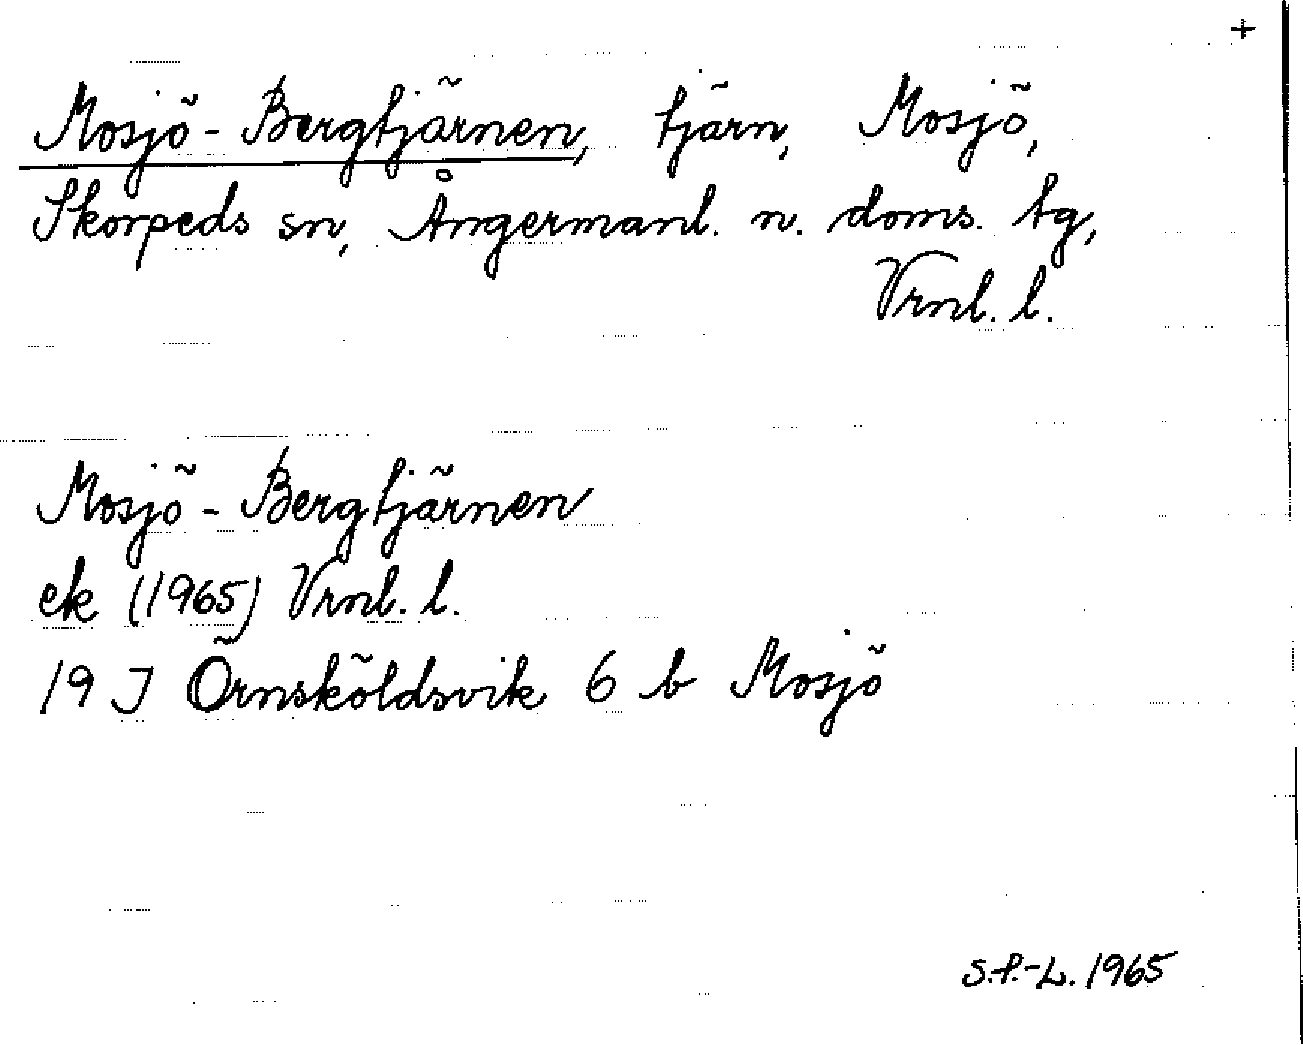 +
Mosjö-Bergtjärnen, tjärn, Mosjö,
Skorpeds sn, Ångermanl. n. doms. tg,
Vrnl. l.
Mosjö-Bergtjärnen
ek (1965) Vrnl. l.
19 J Örnsköldsvik 6 b Mosjö
S.P.-L. 1965